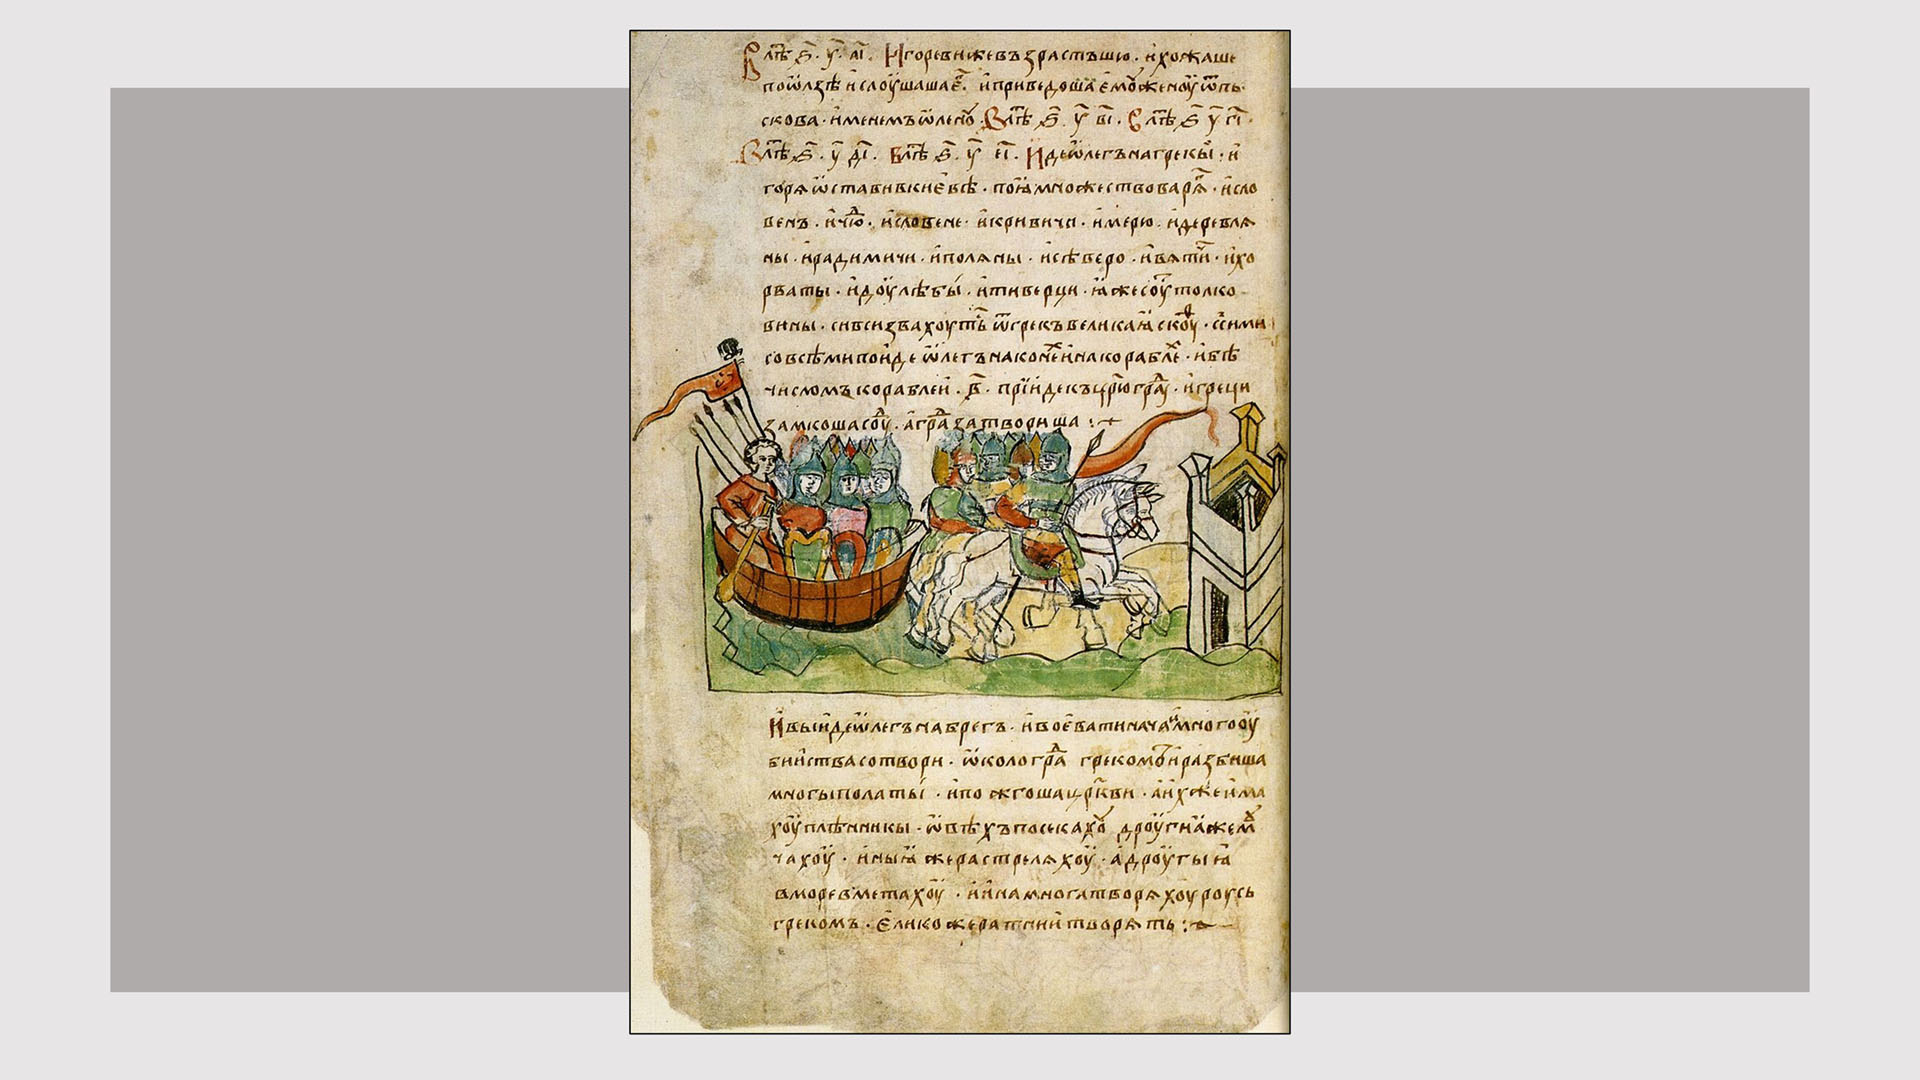 В лѣⷮ ҂ѕ҃ у҃ аі҃. Игореви же възрастъшю. и хожаше
по ѿлзѣ и слоушаша е҃г. и приведоша емоу женоу ѿ пь
скова. именемъ ѿленоу. В лѣⷮ ҂ѕ҃ у҃ ві҃. В лѣⷮ ҂ѕ҃ у҃ гі҃.
В лѣⷮ ҂ѕ҃ у҃ ді҃. В лѣⷮ ҂ѕ҃ у҃ еі҃. Иде ѿлегъ на грекы. и
горѧ ѿставив киевѣ. поѩ множество варѧⷢ. и сло
венъ. и чюⷣ. и словене. и кривичи. и мерю. и деревлѧ
ны. и радимичи. и полѧны. и сѣверо. и вѧтиⷱ. и хо
рваты. и доулѣбы. и тиверци. ѩже соуⷮ толко
вины. си вси звахоутьⷭ ѿ грекъ великаѩ скоуⷴ. с сими
со всѣми поиде ѿлегъ на конеⷯ и на корабле. и бѣ
числомъ кораблеи. ҂в҃. прїиде къ црⷭ҇ю граⷣ. и греци
замкоша соуⷣ. а граⷣ затвориша :
И выиде ѿлегъ на брегъ. и воевати начаⷩ и много оу
биства сотвори. ѿколо граⷣ грекоⷨ и разбиша
многы полаты. и пожгоша црⷦ҇ви. а ихже има
хоу плѣнникы. ѿвѣхъ посекахоу дроугиѧ же моу
чахоу. иныѩ же растрелѧхоу. а дроугыѩ
в море вметахоу. и ина многа творѧхоу роусь
грекомъ. елико же ратнии творѧть :